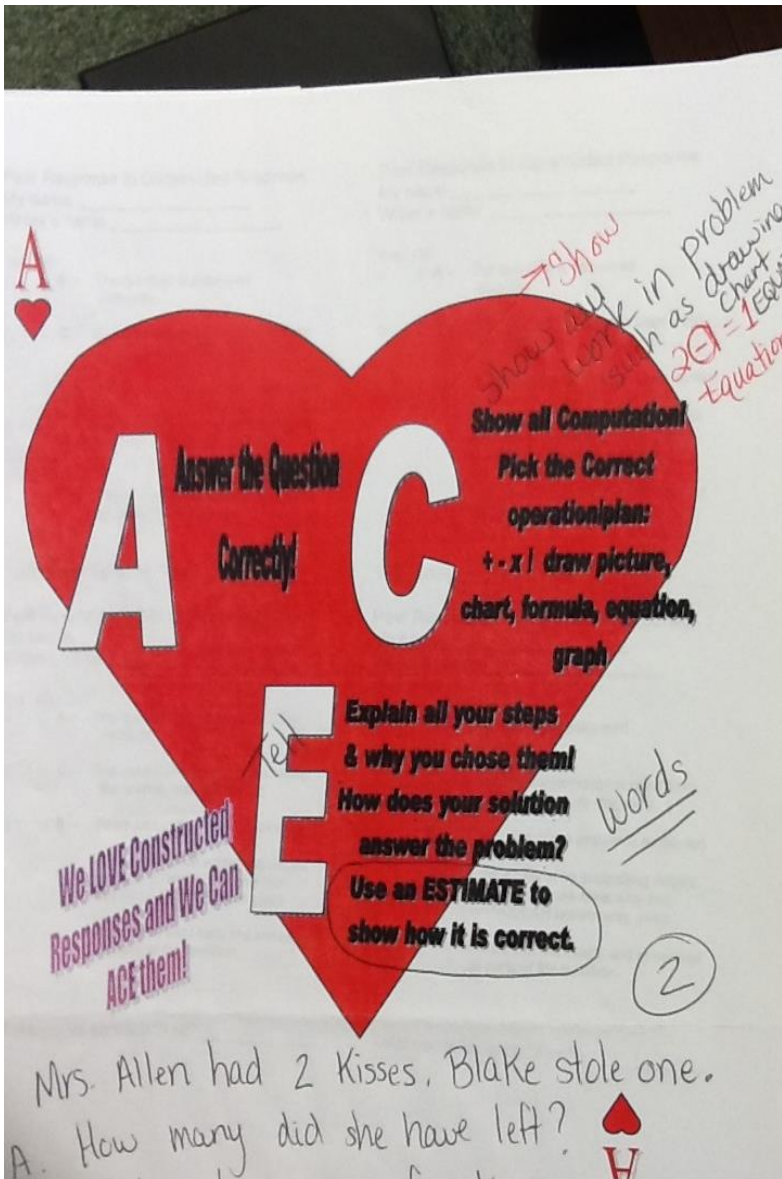 A
→Show
show any
work in problem
such as drawing
chart
2-1=1
Equation
A
Answer the Question
Correctly!
C
Show all Computation!
Pick the Correct
operation/plan:
+ - x ! draw picture,
chart, formula, equation,
graph
Tell
E
Explain all your steps
& why you chose them!
How does your solution
answer the problem?
Use an ESTIMATE to
show how it is correct.
Words
2
We LOVE Constructed
Responses and We Can
ACE them!
Mrs. Allen had 2 Kisses. Blake stole one.
A. How many did she have left?
A